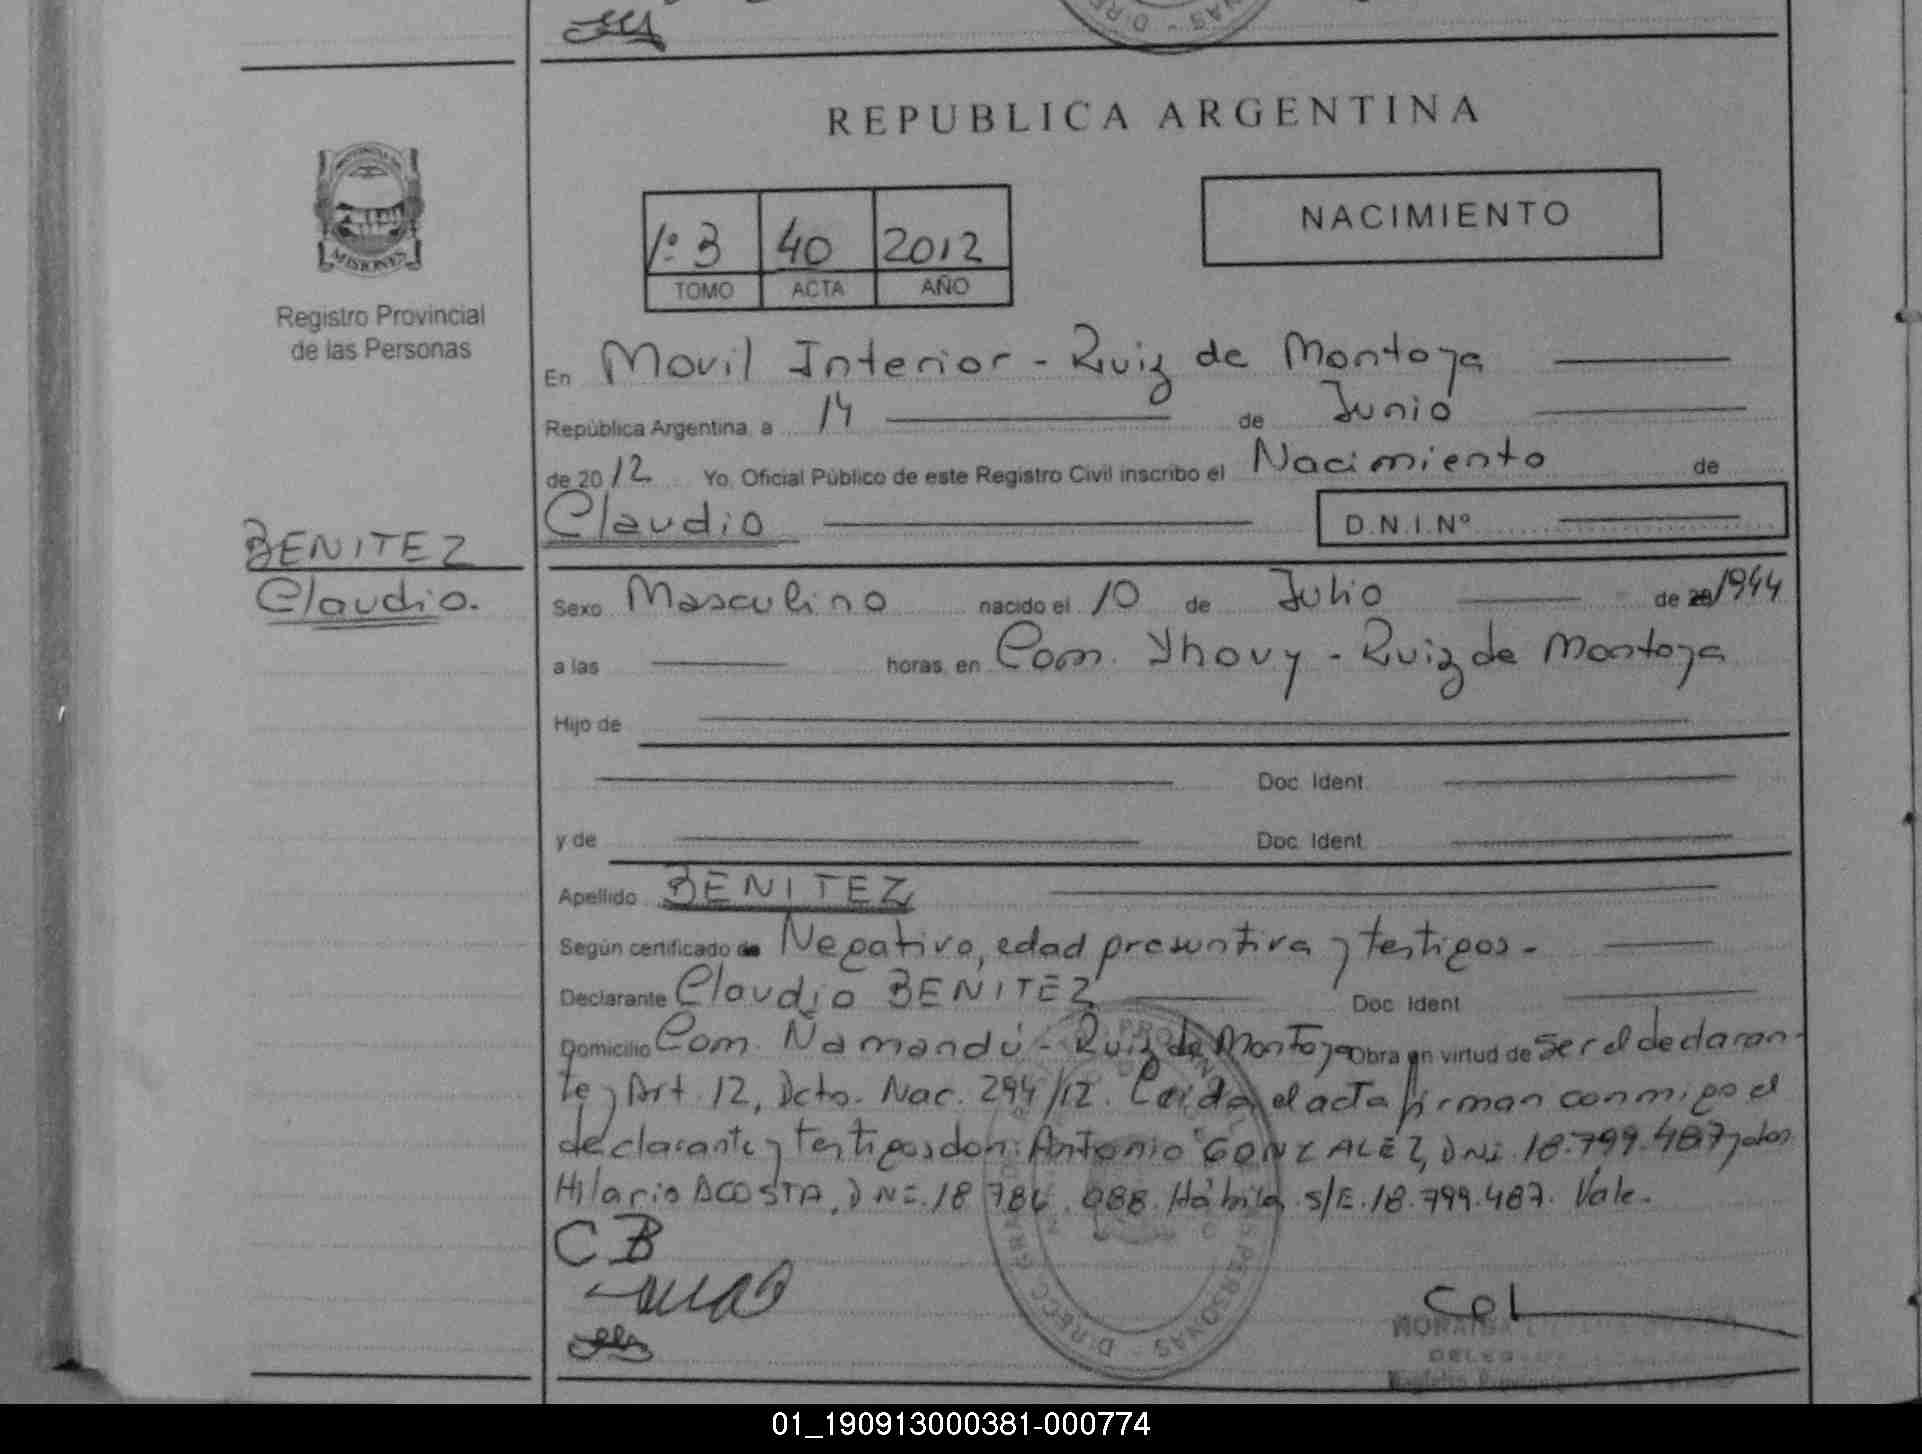 REPUBLICA ARGENTINA
MISIONES
Registro Provincial
de las Personas
1º 3 40 2012
TOMO ACTA AÑO
NACIMIENTO
En Movil Interior - Ruiz de Montoya
República Argentina, a 14 de Junio
de 2012 Yo, Oficial Público de este Registro Civil inscribo el Nacimiento de
Claudio D.N.I.Nº
BENITEZ
Claudio.
Sexo Masculino nacido el 10 de Julio de 1944
a las horas, en Com. Yhovy - Ruiz de Montoya
Hijo de
Doc. Ident.
y de Doc. Ident.
Apellido BENITEZ
Según certificado de Negativo, edad presuntiva y testigos.
Declarante Claudio BENITEZ Doc. Ident.
Domicilio Com. Ñamandú - Ruiz de Montoya Obra en virtud de ser el declaran-
te y Art. 12, Dcto. Nac. 294/12. Leída el acta firman conmigo el
declarante y testigos don: Antonio GONZALEZ, DNI. 18.799.487 y don
Hilario ACOSTA, DNI. 18 786 088. Hábiles. S/E. 18.799.487. Vale.
CB
DIRECC GRAL PERSONAS
01_190913000381-000774